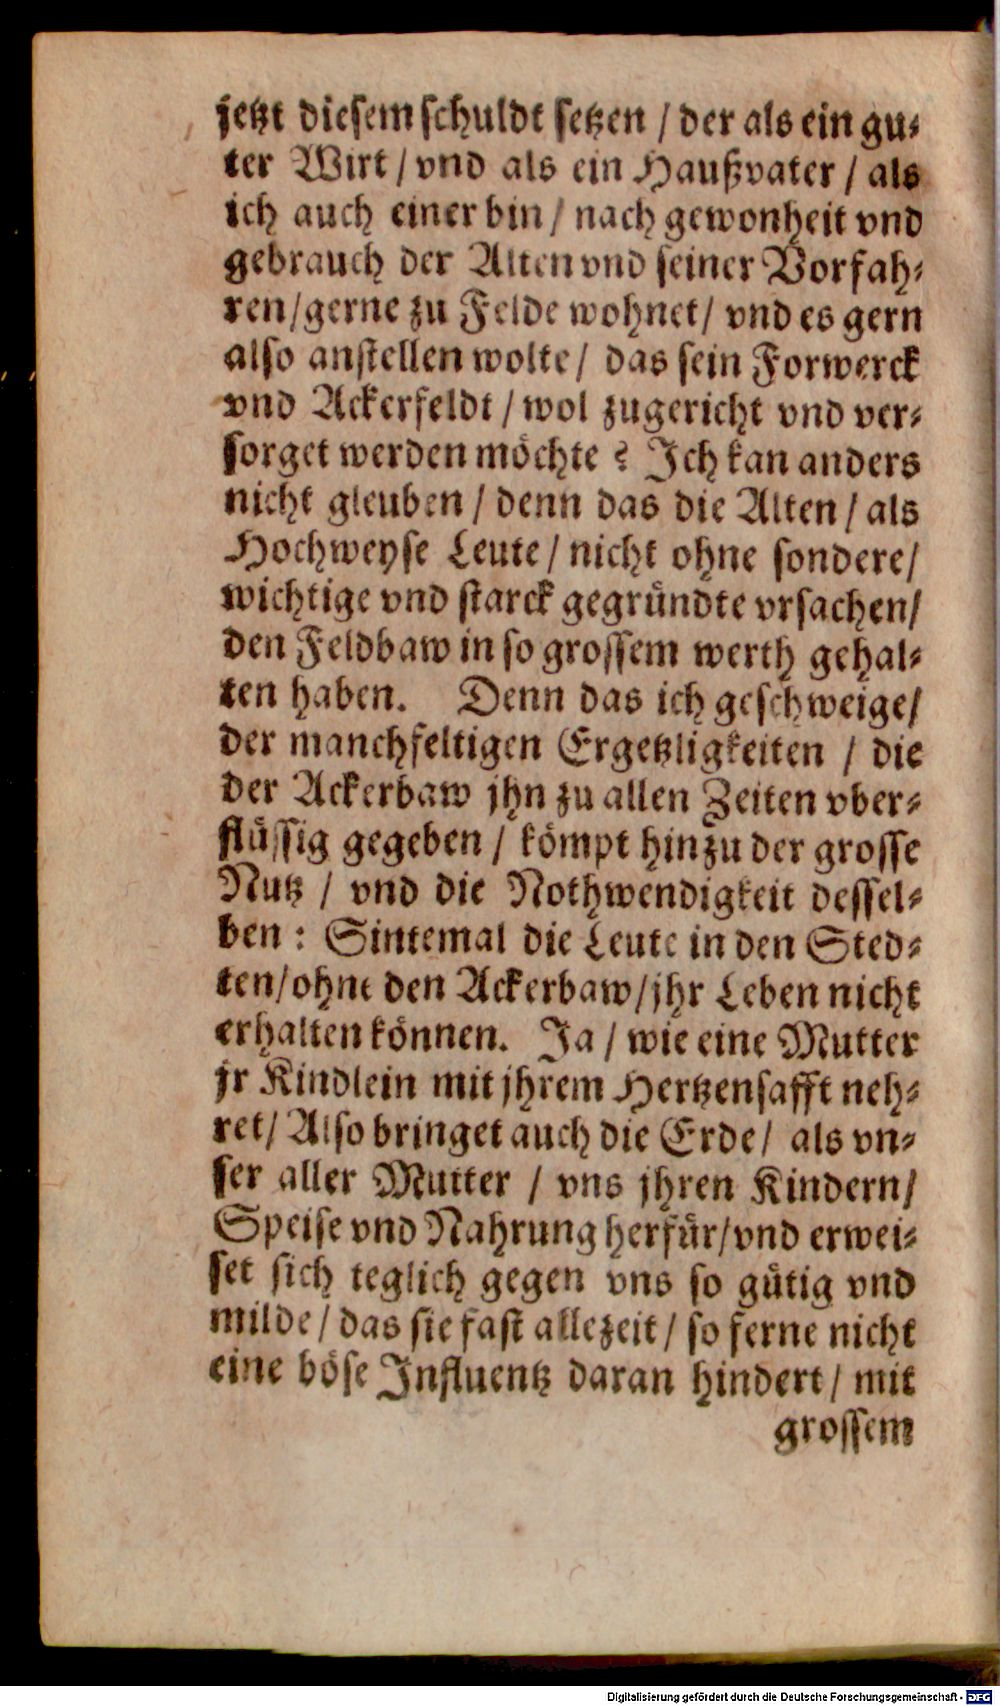 jetzt diesem schuldt setzen / der als ein gu⸗
ter Wirt / vnd als ein Haußvater / als
ich auch einer bin / nach gewonheit vnd
gebrauch der Alten vnd seiner Vorfah⸗
ren / gerne zu Felde wohnet / vnd es gern
also anstellen wolte / das sein Forwerck
vnd Ackerfeldt / wol zugericht vnd ver⸗
sorget werden möchte ? Ich kan anders
nicht gleuben / denn das die Alten / als
Hochweyse Leute / nicht ohne sondere /
wichtige vnd starck gegründte vrsachen /
den Feldbaw in so grossem werth gehal⸗
ten haben. Denn das ich geschweige /
der manchfeltigen Ergetzligkeiten / die
der Ackerbaw jhn zu allen Zeiten vber⸗
flüssig gegeben / kömpt hinzu der grosse
Nutz / vnd die Nothwendigkeit dessel⸗
ben : Sintemal die Leute in den Sted⸗
ten / ohne den Ackerbaw / jhr Leben nicht
erhalten können. Ja / wie eine Mutter
jr Kindlein mit jhrem Hertzensafft neh⸗
ret / Also bringet auch die Erde / als vn⸗
ser aller Mutter / vns jhren Kindern /
Speise vnd Nahrung herfür / vnd erwei⸗
set sich teglich gegen vns so gütig vnd
milde / das sie fast allezeit / so ferne nicht
eine böse Influentz daran hindert / mit
grossem
Digitalisierung gefördert durch die Deutsche Forschungsgemeinschaft - DFG